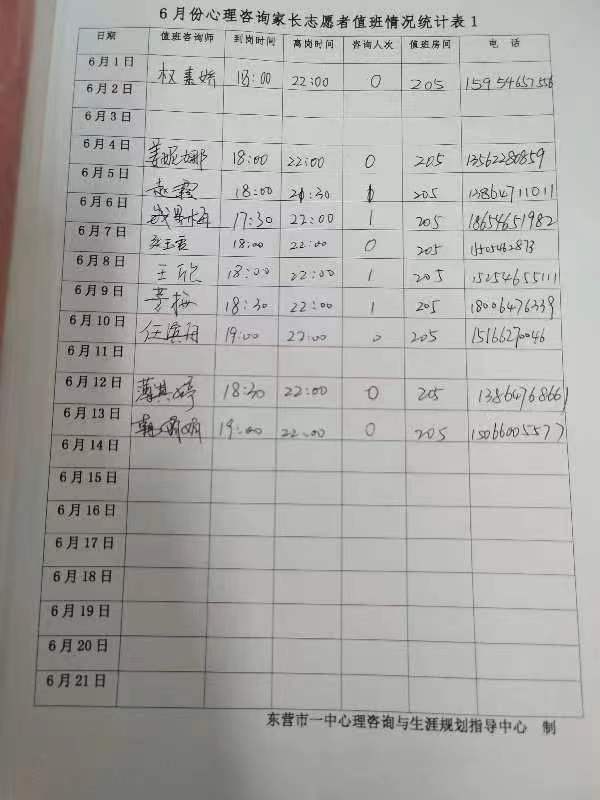 6月份心理咨询家长志愿者值班情况统计表1
日期 值班咨询师 到岗时间 离岗时间 咨询人次 值班房间 电 话
6月1日 权素娇 18:00 22:00 0 205
6月2日
6月3日
6月4日 姜妮娜 18:00 22:00 0 205 13562280859
6月5日 赵霞 18:00 205 13864711011
6月6日 17:30 22:00 1 205 18654651982
6月7日 18:00 22:00 0 205
6月8日 王欣 18:00 22:00 1 205 15254655111
6月9日 18:30 22:00 1 205 18006476339
6月10日 19:00 22:00 0 205 15166270046
6月11日
6月12日 薄其婷 18:30 22:00 0 205 13864768661
6月13日 19:00 22:00 0 205 15066005577
6月14日
6月15日
6月16日
6月17日
6月18日
6月19日
6月20日
6月21日
东营市一中心理咨询与生涯规划指导中心 制